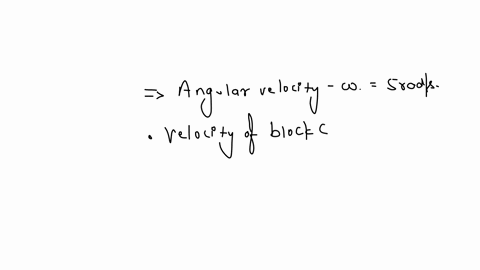 => Angular velocity - ω. = 5 rad/s.
• velocity of block C